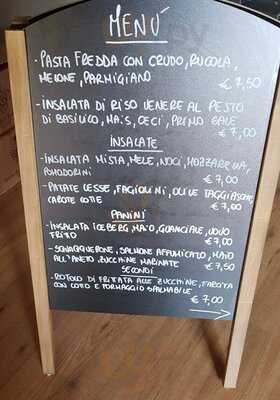 MENU'
- PASTA FREDDA CON CRUDO, RUCOLA,
MELONE, PARMIGIANO
€ 7,50
- INSALATA DI RISO VENERE AL PESTO
DI BASILICO, MAIS, CECI, PRIMO SALE
€ 7,00
INSALATE
- INSALATA MISTA, MELE, NOCI, MOZZARELLA,
POMODORINI
€ 7,00
- PATATE LESSE, FAGIOLINI, OLIVE TAGGIASCHE
CAROTE COTTE
€ 7,00
PANINI
- INSALATA ICEBERG, MAIO, GUANCIALE, UOVO
FRITTO
€ 7,00
- SQUACQUERONE, SALMONE AFFUMICATO, MAIO
ALL'ANETO, ZUCCHINE MARINATE
€ 7,50
SECONDI
- ROTOLO DI FRITTATA ALLE ZUCCHINE, FARCITA
CON COTTO E FORMAGGIO SPALMABILE
€ 7,00